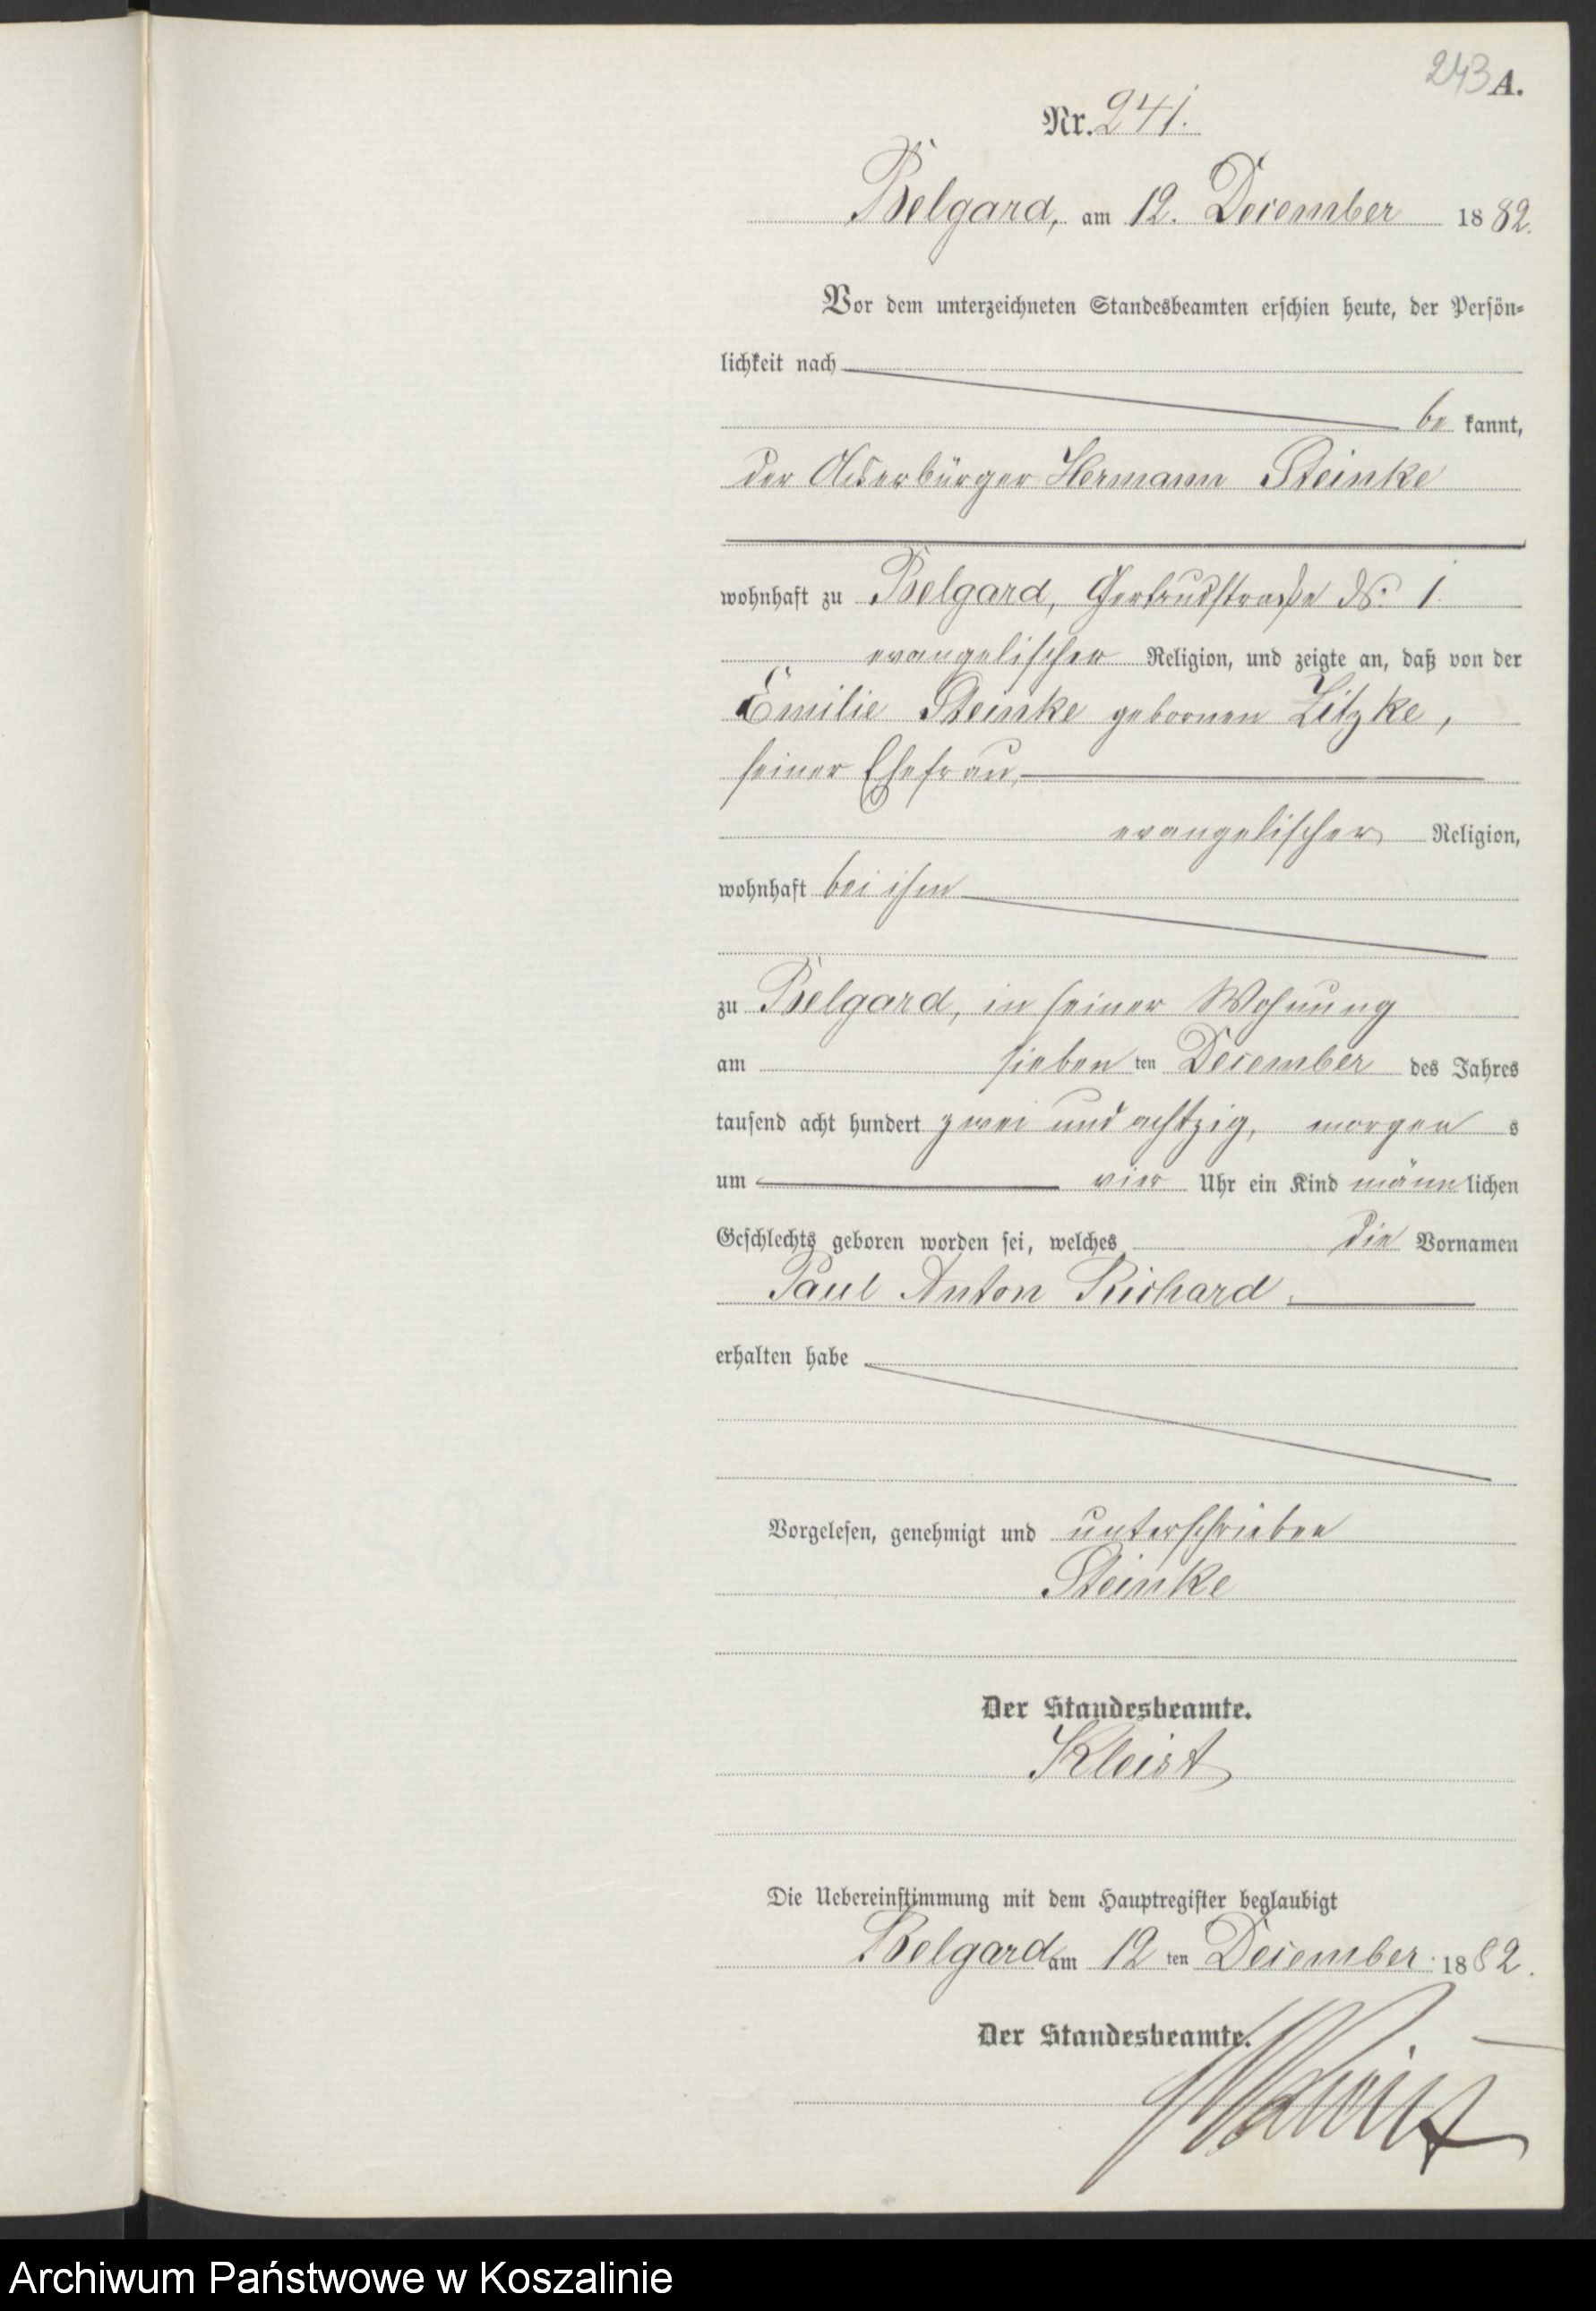 243 A.
Nr. 241.
Belgard, am 12. December 1882.
Vor dem unterzeichneten Standesbeamten erschien heute, der Persön-
lichkeit nach
be kannt,
der Ackerbürger Hermann Steinke
wohnhaft zu Belgard, Gertrudstraße No. 1.
evangelischer Religion, und zeigte an, daß von der
Emilie Steinke gebornen Litzke,
seiner Ehefrau,
evangelischer Religion,
wohnhaft bei ihm
zu Belgard, in seiner Wohnung
am sieben ten December des Jahres
tausend acht hundert zwei und achtzig, morgen s
um vier Uhr ein Kind männ lichen
Geschlechts geboren worden sei, welches die Vornamen
Paul Anton Richard
erhalten habe
Vorgelesen, genehmigt und unterschrieben
Steinke
Der Standesbeamte.
Kleist
Die Uebereinstimmung mit dem Hauptregister beglaubigt
Belgard am 12 ten December 1882.
Der Standesbeamte.
Kleist
Archiwum Państwowe w Koszalinie